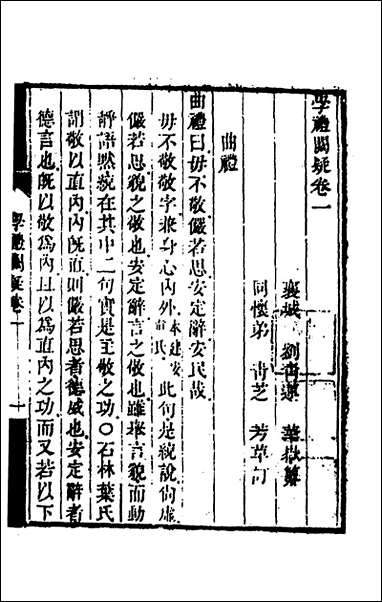 學禮闕疑卷一
襄城 劉青蓮 華嶽纂
同懷弟 青芝 芳草訂
曲禮
曲禮曰毋不敬儼若思安定辭安民哉
毋不敬敬字兼身心內外本建安眞氏此句是統說尚虛
儼若思貌之敬也安定辭言之敬也雖舉言貌而動
靜語默統在其中二句實是主敬之功〇石林葉氏
謂敬以直內內既直則儼若思者德威也安定辭者
德言也既以敬為內且以為直內之功而又若以下
學禮闕疑卷一
一